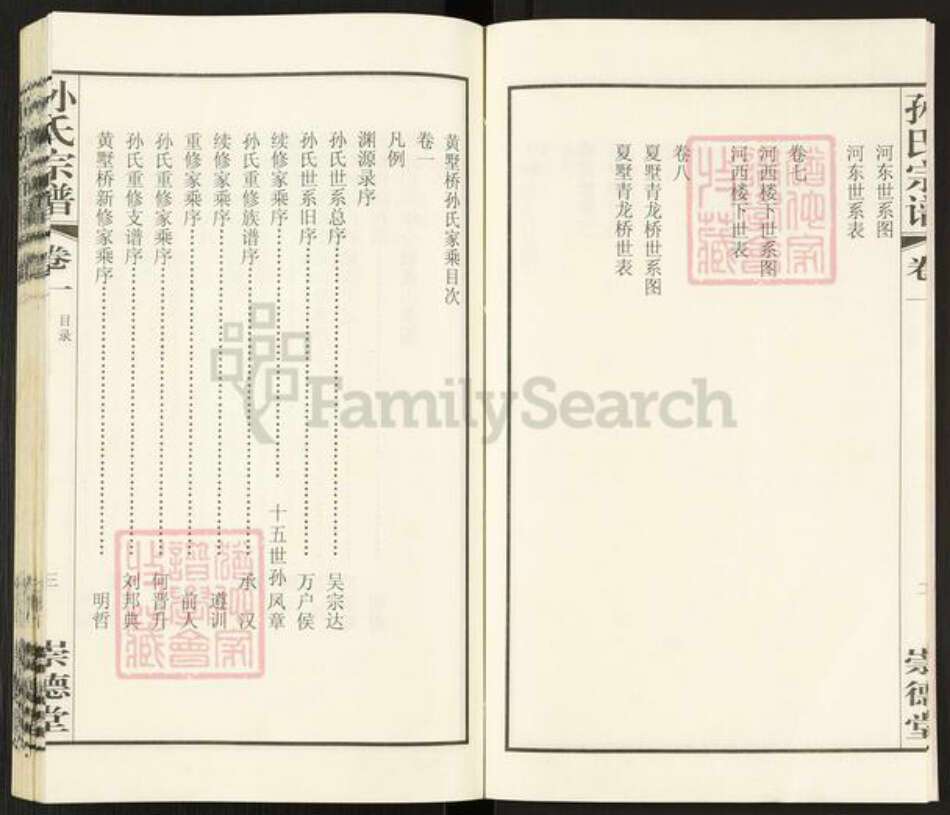 孙氏宗谱
卷一
二
崇德堂
河东世系图
河东世系表
卷七
河西楼下世系图
河西楼下世表
卷八
夏墅青龙桥世系图
夏墅青龙桥世表
黄墅桥孙氏家乘目次
卷一
凡例
渊源录序
孙氏世系总序………………吴宗达
孙氏世系旧序………………万户侯
续修家乘序………………十五世孙凤章
孙氏重修族谱序………………承 汉
续修家乘序………………遵训
重修家乘序………………前人
孙氏重修家乘序………………何晋升
孙氏重修支谱序………………刘邦典
黄墅桥新修家乘序………………明哲
孙氏宗谱
卷一
目录
三
崇德堂
FamilySearch